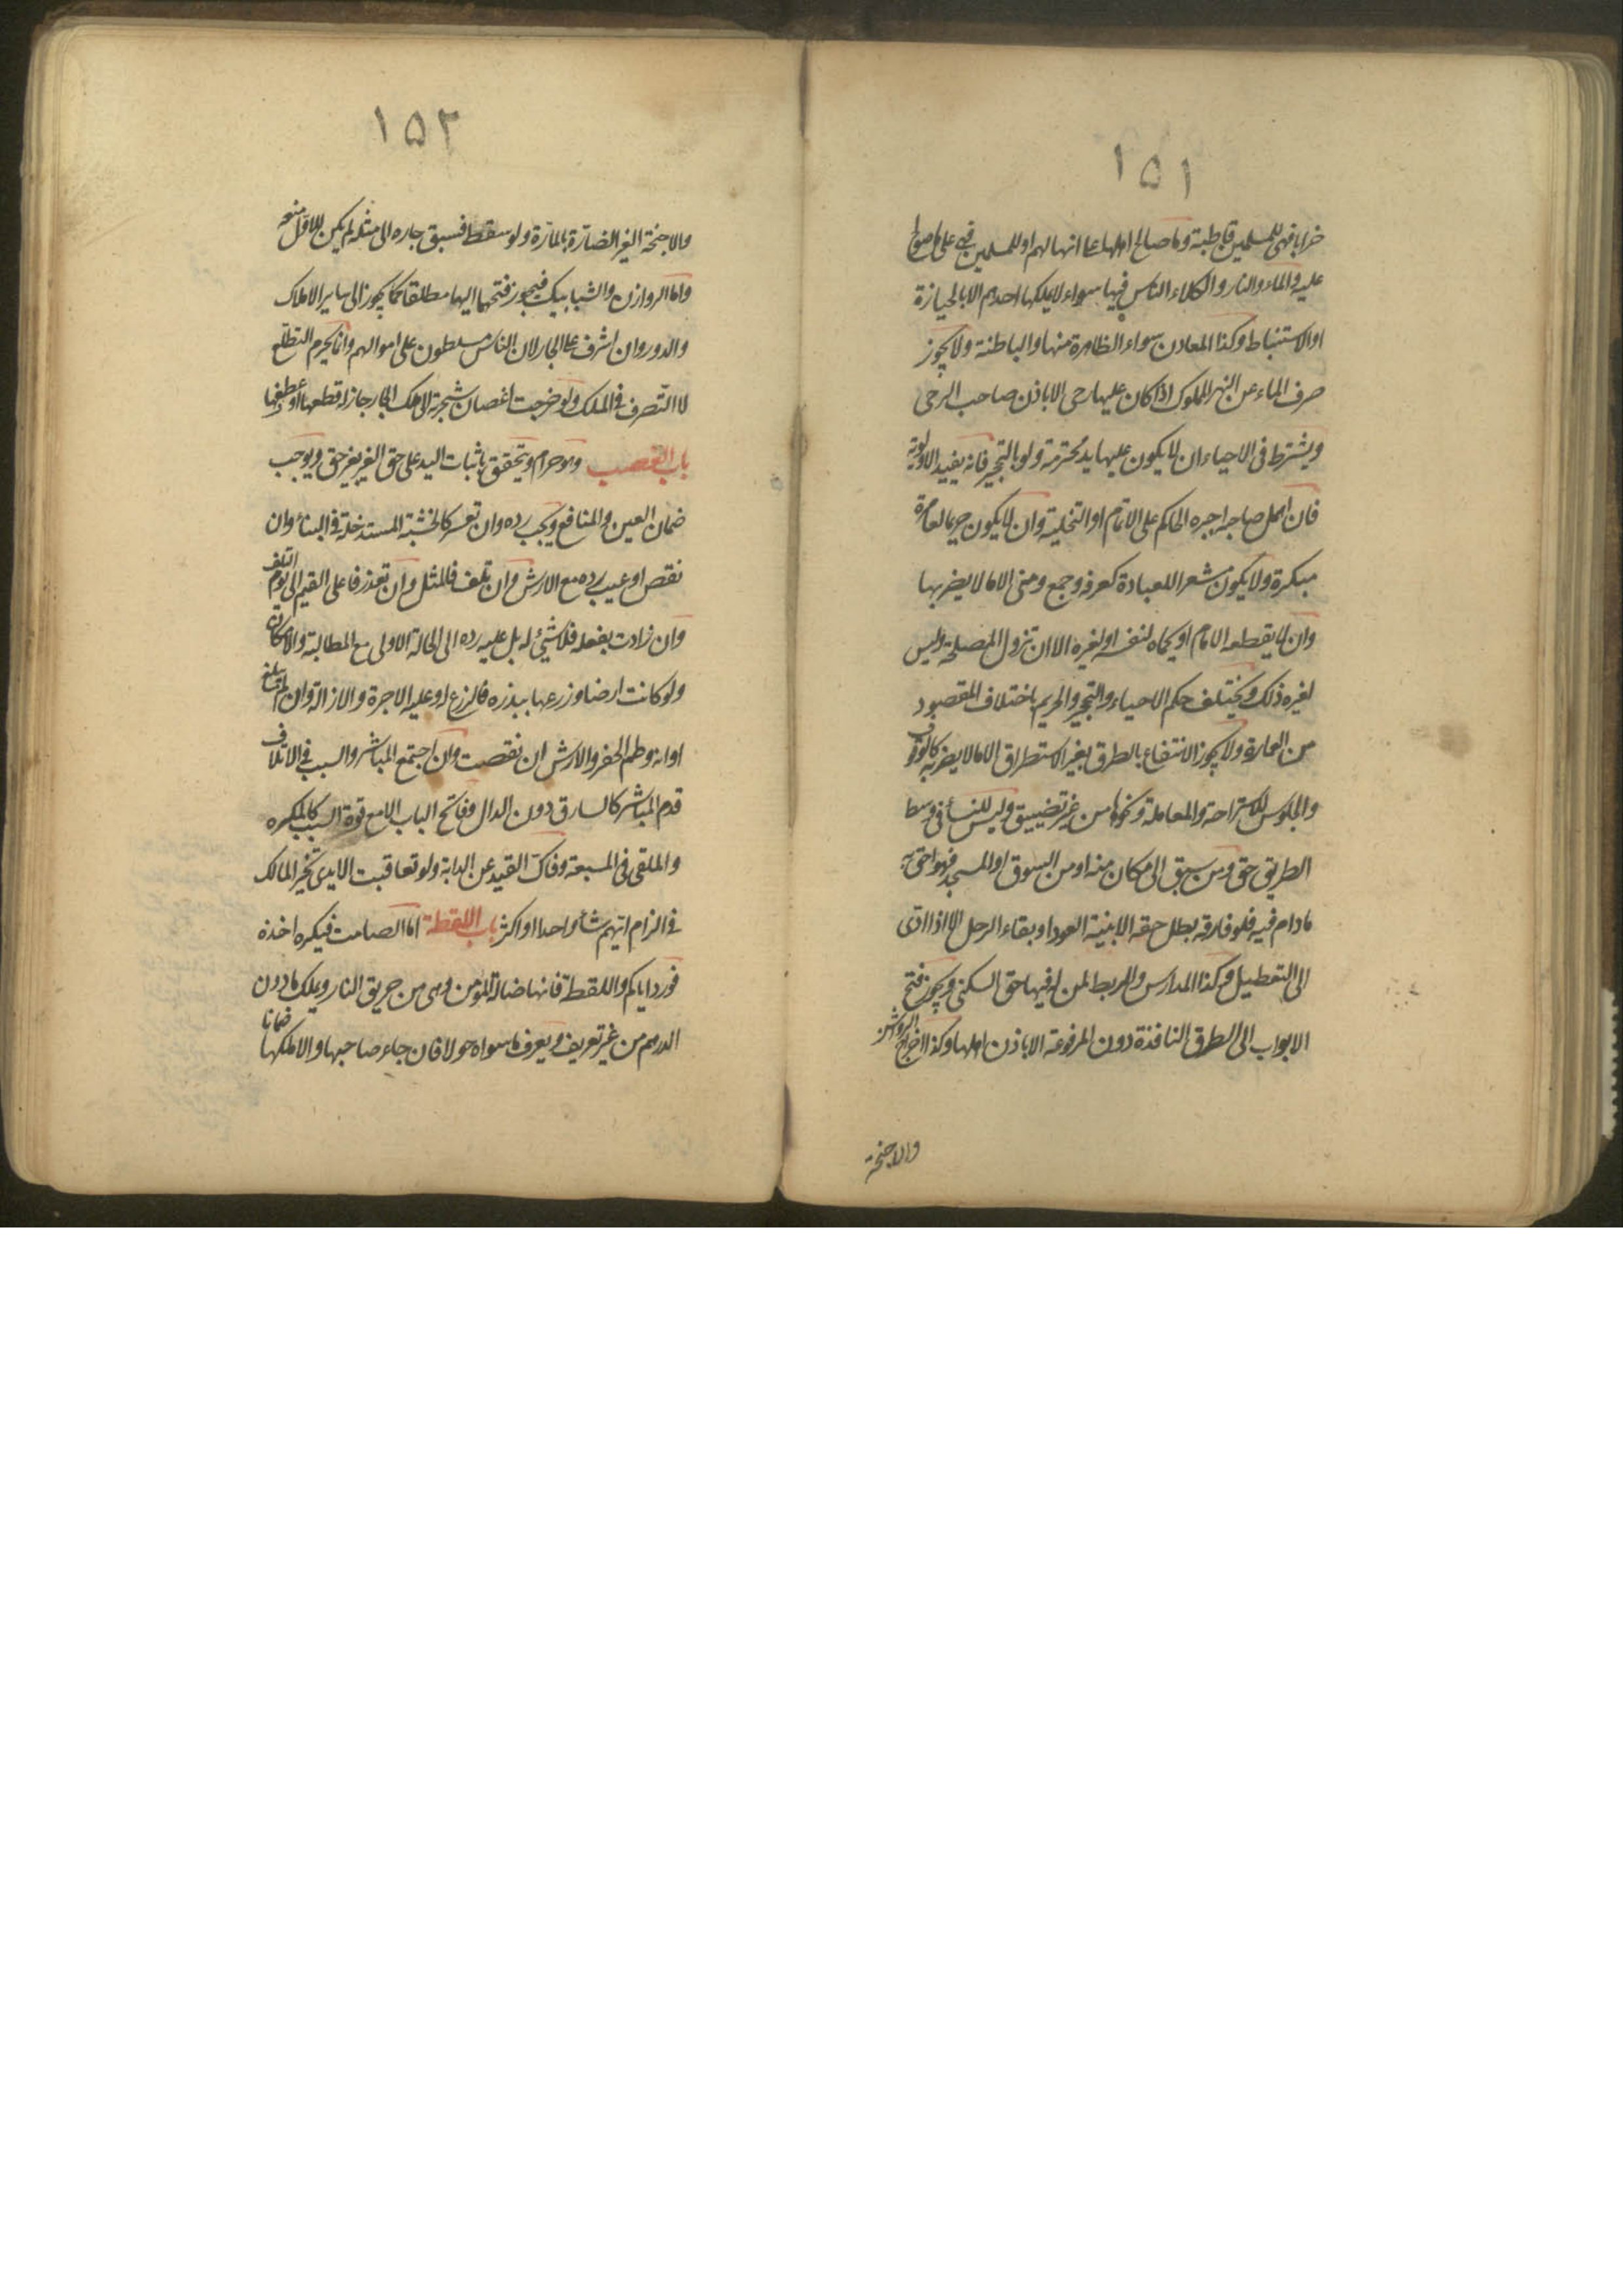 ١٥١
خرابا فهى للمسلمين قاطبة وما صالح اهلها على انها لهم او للمسلمين فهى على ما صولح
عليه والماء والنار والكلاء الناس فيها سواء لا يملكها احدهم الا بالحيازة
او الاستنباط وكذا المعادن سواء الظاهرة منها والباطنة ولا يجوز
صرف الماء عن النهر المملوك اذا كان عليها رحى الا باذن صاحب الرحى
ويشترط فى الاحياء ان لا يكون عليها يد محترمة ولو بالتحجير فانه يفيد الاولوية
فان اهمل صاحبه اجبره الحاكم على الاتمام او التخلية وان لا يكون حريما لعامرة
مبتكرة ولا يكون مشعرا للعبادة كعرفه وجمع ومنى الا ما لا يضر بها
وان لا يقطعه الامام او يحماه لنفسه او لغيره الا ان تزول المصلحة وليس
لغيره ذلك ويختلف حكم الاحياء والتحجير والحريم باختلاف المقصود
من العمارة ولا يجوز الانتفاع بالطرق بغير الاستطراق الا ما لا يضر به كالوقوف
والجلوس للاستراحة والمعاملة ونحوها من غير تضييق وليس للنسأ فى وسط
الطريق حق ومن سبق الى مكان منه او من السوق او المسجد فهو احق به
مادام فيه فلو فارقه بطل حقه الا بنية العود او بقاء الرحل الا اذا ادى
الى التعطيل وكذا المدارس والربط لمن له فيها حق السكنى ويجوز فتح
الابواب الى الطرق النافذة دون المرفوعة الا باذن اهلها وكذا اخراج الروشن
والاجنحة
١٥٢
والاجنحة الغير الضارّة بالمارّة ولو سقط فسبق جاره الى مثله لم يكن للاوّل منعه
واما الروازن والشبابيك فيجوز فتحها اليها مطلقا كما يجوز الى ساير الاملاك
والدور وان اشرف على الجار لان الناس مسلطون على اموالهم وانما يحرم التطلّع
لا التصرف فى الملك ولو خرجت اغصان شجرته الى ملك الجار جاز له قطعها او عطفها
باب الغصب وهو حرام ويتحقق باثبات اليد على حق الغير بغير حق ويوجب
ضمان العين والمنافع ويجب رده وان تعسر كالخشبة المستدخلة فى البنأ وان
نقص او عيب يرده مع الارش وان تلف فالمثل وان تعذر فاعلى القيم الى يوم التلف
وان زادت بفعله فلا شئ له بل عليه رده الى الحالة الاولى مع المطالبة والامكان
ولو كانت ارضا وزرعها ببذره فالزرع له وعليه الاجرة والازالة وان لم تبلغ
اوانه وطم الحفر والارش ان نقصت وان اجتمع المباشر والسبب فى الاتلاف
قدم المباشر كالسارق دون الدال وفاتح الباب الا مع قوة السبب كالمكره
والملقى فى المسبعة وفاك القيد عن الدابة ولو تعاقبت الايدى تخير المالك
فى الزام ايهم شأ واحدا او اكثر باب اللقطة اما الصامت فيكره اخذه
فورد اياكم واللقطة فانها ضالة المؤمن وهى من حريق النار ويملك ما دون
الدرهم من غير تعريف ويعرف ما سواه حولا فان جاء صاحبها والا ملكها ضمانا